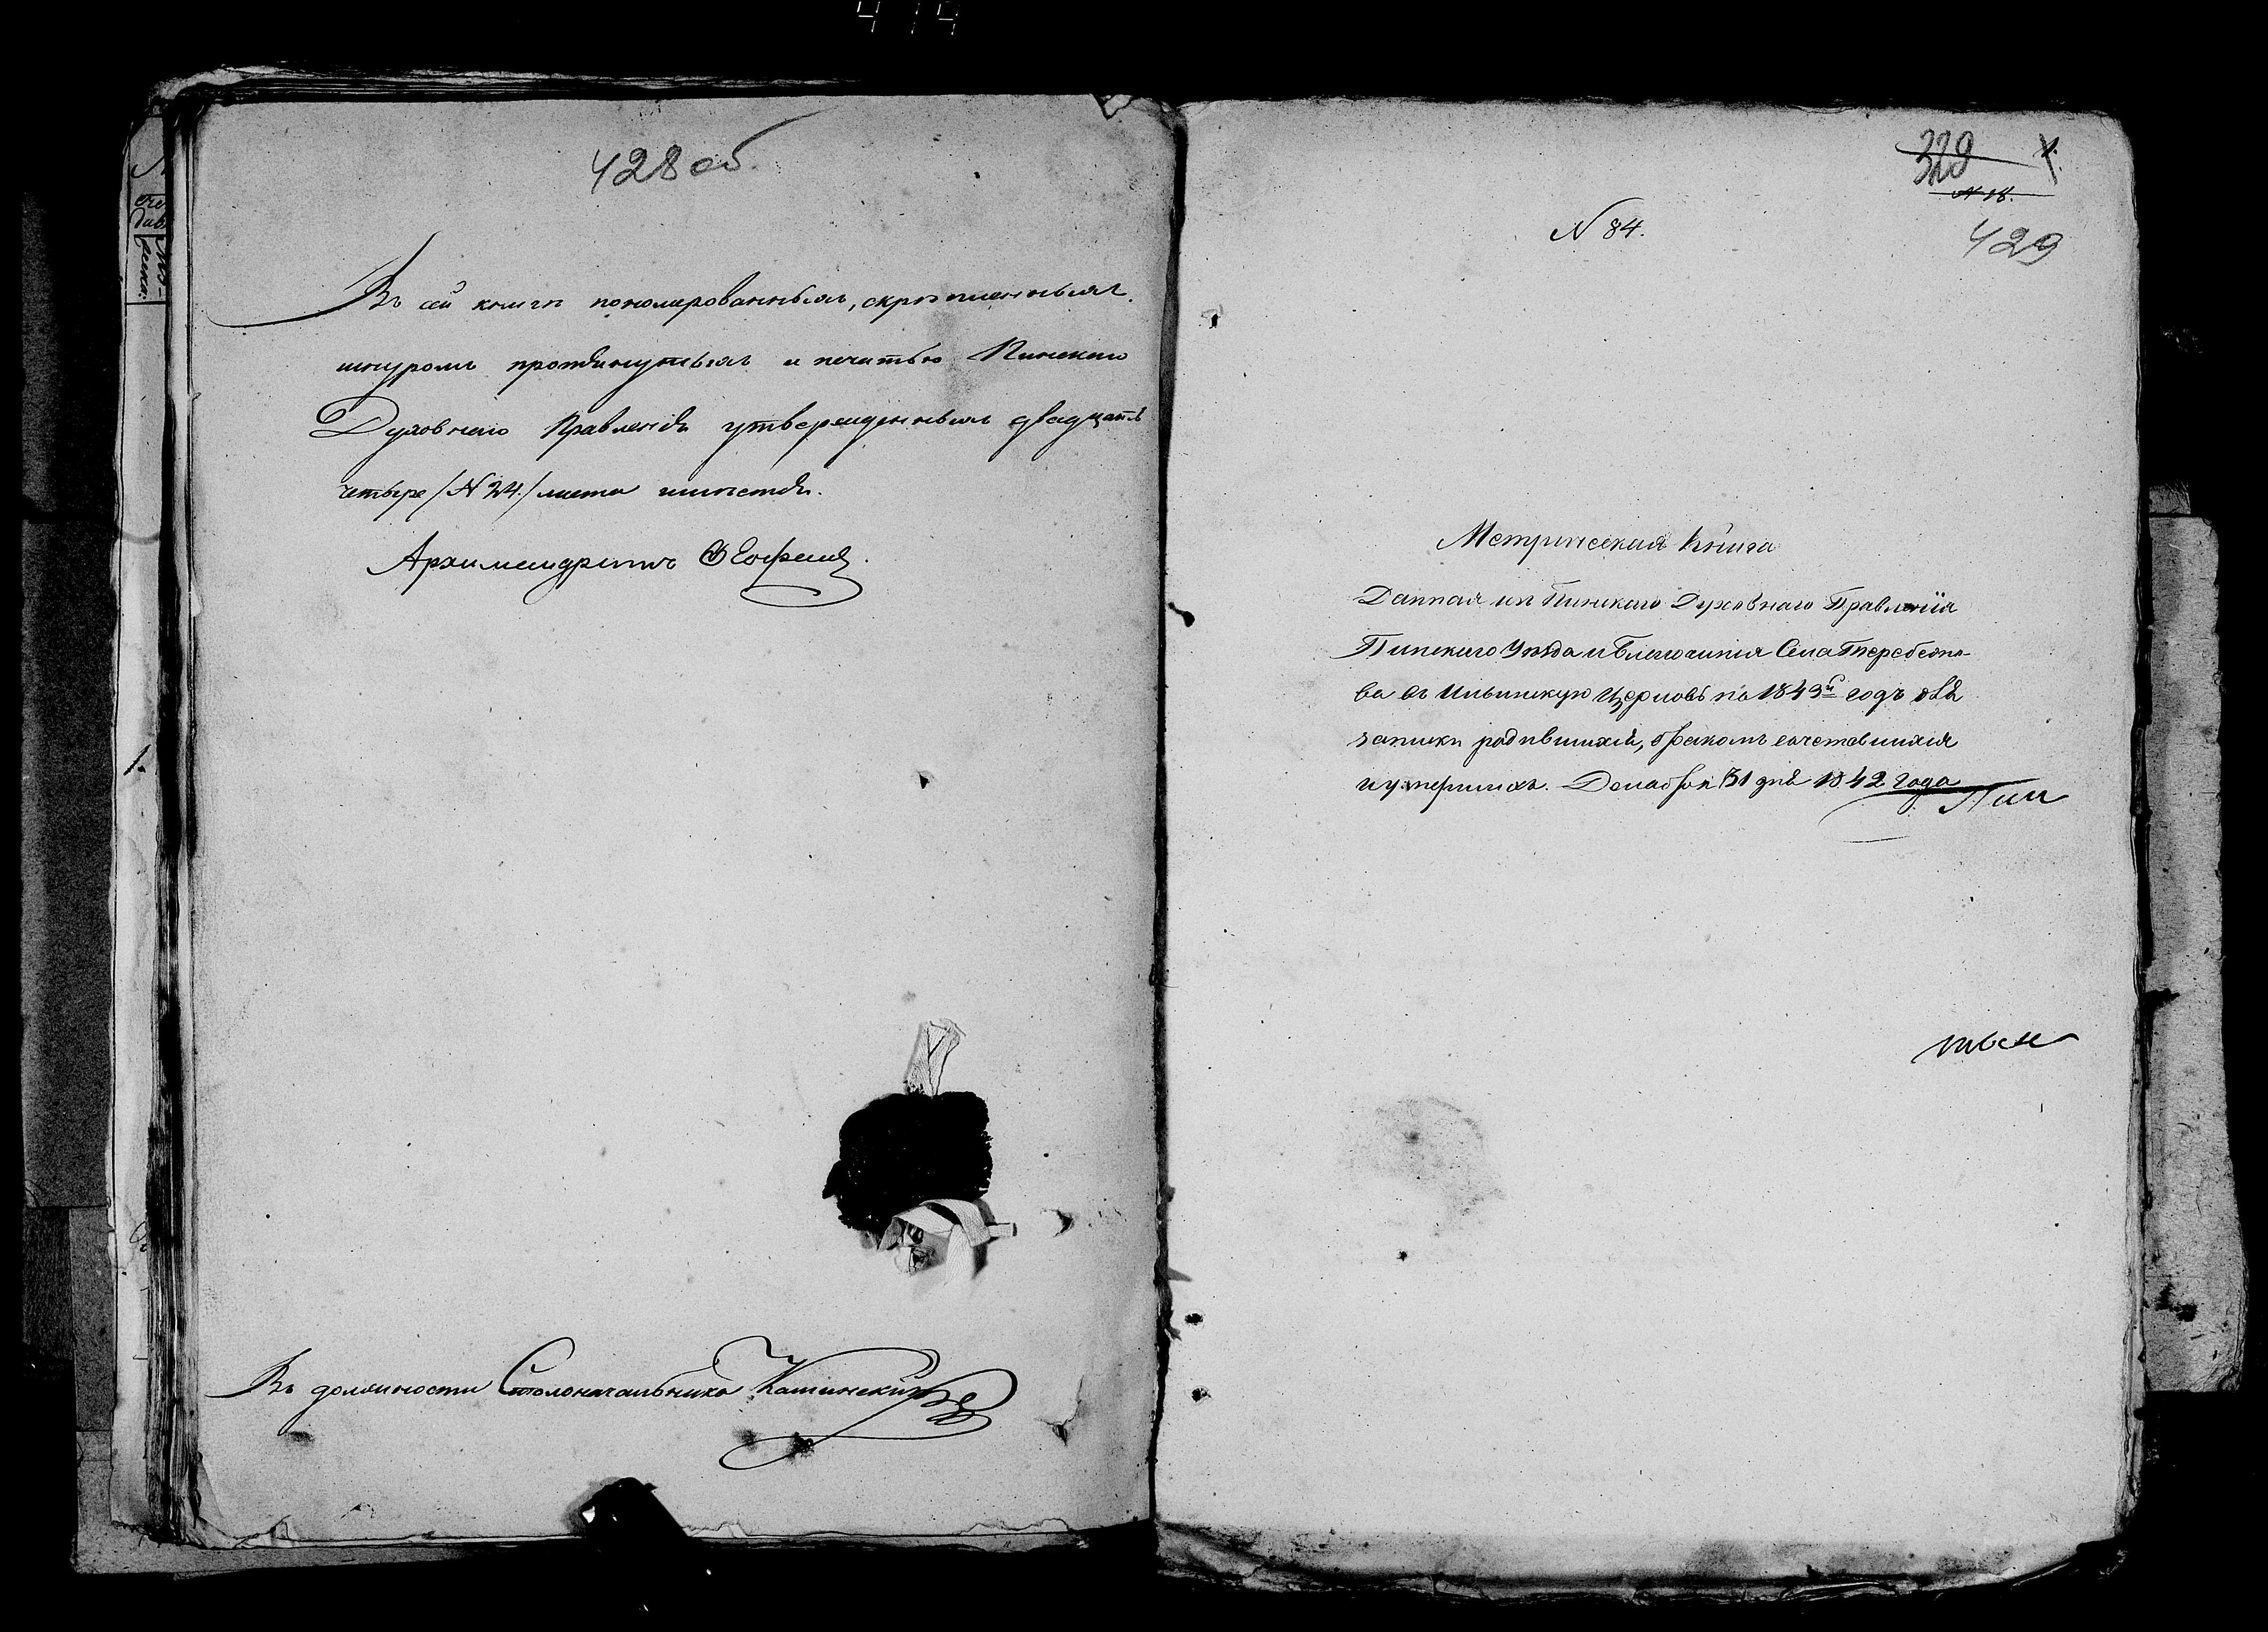 414
428 об.
Въ сей книгѣ пономерованныхъ, скрѣпленныхъ,
шнуромъ протянутыхъ и печатью Пинскаго
Духовнаго Правленія утвержденныхъ двадцать
четыре /N 24./ листа имѣется.
Архимандритъ
Въ должности Столоначальника
329
N 18.
429
N 84.
Метрическая Книга
Данная изъ Пинскаго Духовнаго Правленія
Пинскаго Уѣзда и Благочинія Села
въ Ильинскую Церковь на 1843й годъ для
записки родившихся, бракомъ сочетавшихся
и умершихъ. Декабря 31 дня 1842 года
Пин